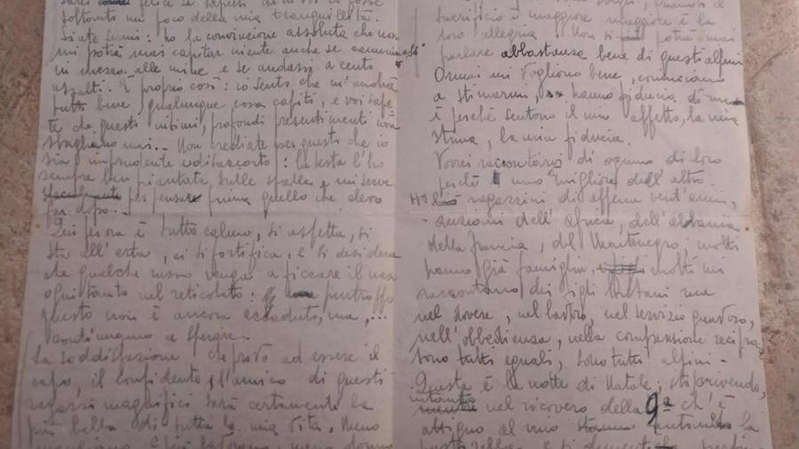 sarei felice se sapessi di darvi io forse
soltanto un poco della mia tranquillità.
State fermi: ho la convinzione assoluta che non
mi potrà mai capitar niente anche se camminassi
in mezzo alle mine e se andassi a cento
assalti. È proprio così: io sento che m'andrà
tutto bene, qualunque cosa capiti, e voi sape
te che questi intimi, profondi presentimenti non
sbagliano mai. Non crediate per questo che io
sia imprudente o distaccato: la testa l'ho
sempre ben piantata sulle spalle e mi serve
per pensare prima quello che devo
far dopo.
Qui per ora è tutto calmo, si aspetta, si
sta all'erta, ci si fortifica, e si desidera
che qualche russo venga a ficcare il naso
ogni tanto nel reticolato: purtroppo
questo non è ancora accaduto, ma,...
continuiamo a sperare.
La soddisfazione che provo ad essere il
capo, il confidente, l'amico di questi
ragazzi magnifici sarà certamente la
più bella di tutta la mia vita. Meno
sacrificio è maggiore maggiore è la
loro allegria. Non si potrà mai
parlare abbastanza bene di questi alpini
Ormai mi vogliono bene, cominciano
a stimarmi, hanno fiducia di me
è perché sentono il mio affetto, la mia
stima, la mia fiducia.
Vorrei raccontarvi di ognuno di loro
perché uno migliore dell'altro.
Ho ragazzini di appena vent'anni,
anziani dell'Africa, dell'Albania
della Francia, del Montenegro; molti
hanno già famiglia, molti mi
raccontano dei figli lontani ma
nel dovere, nel lavoro, nel servizio gravoso,
nell'obbedienza, nella comprensione recipro
sono tutti eguali, sono tutti alpini.
Questa è la notte di Natale; sto scrivendo,
intanto nel ricovero della 9a ch'è
attiguo al mio stanno cantando la